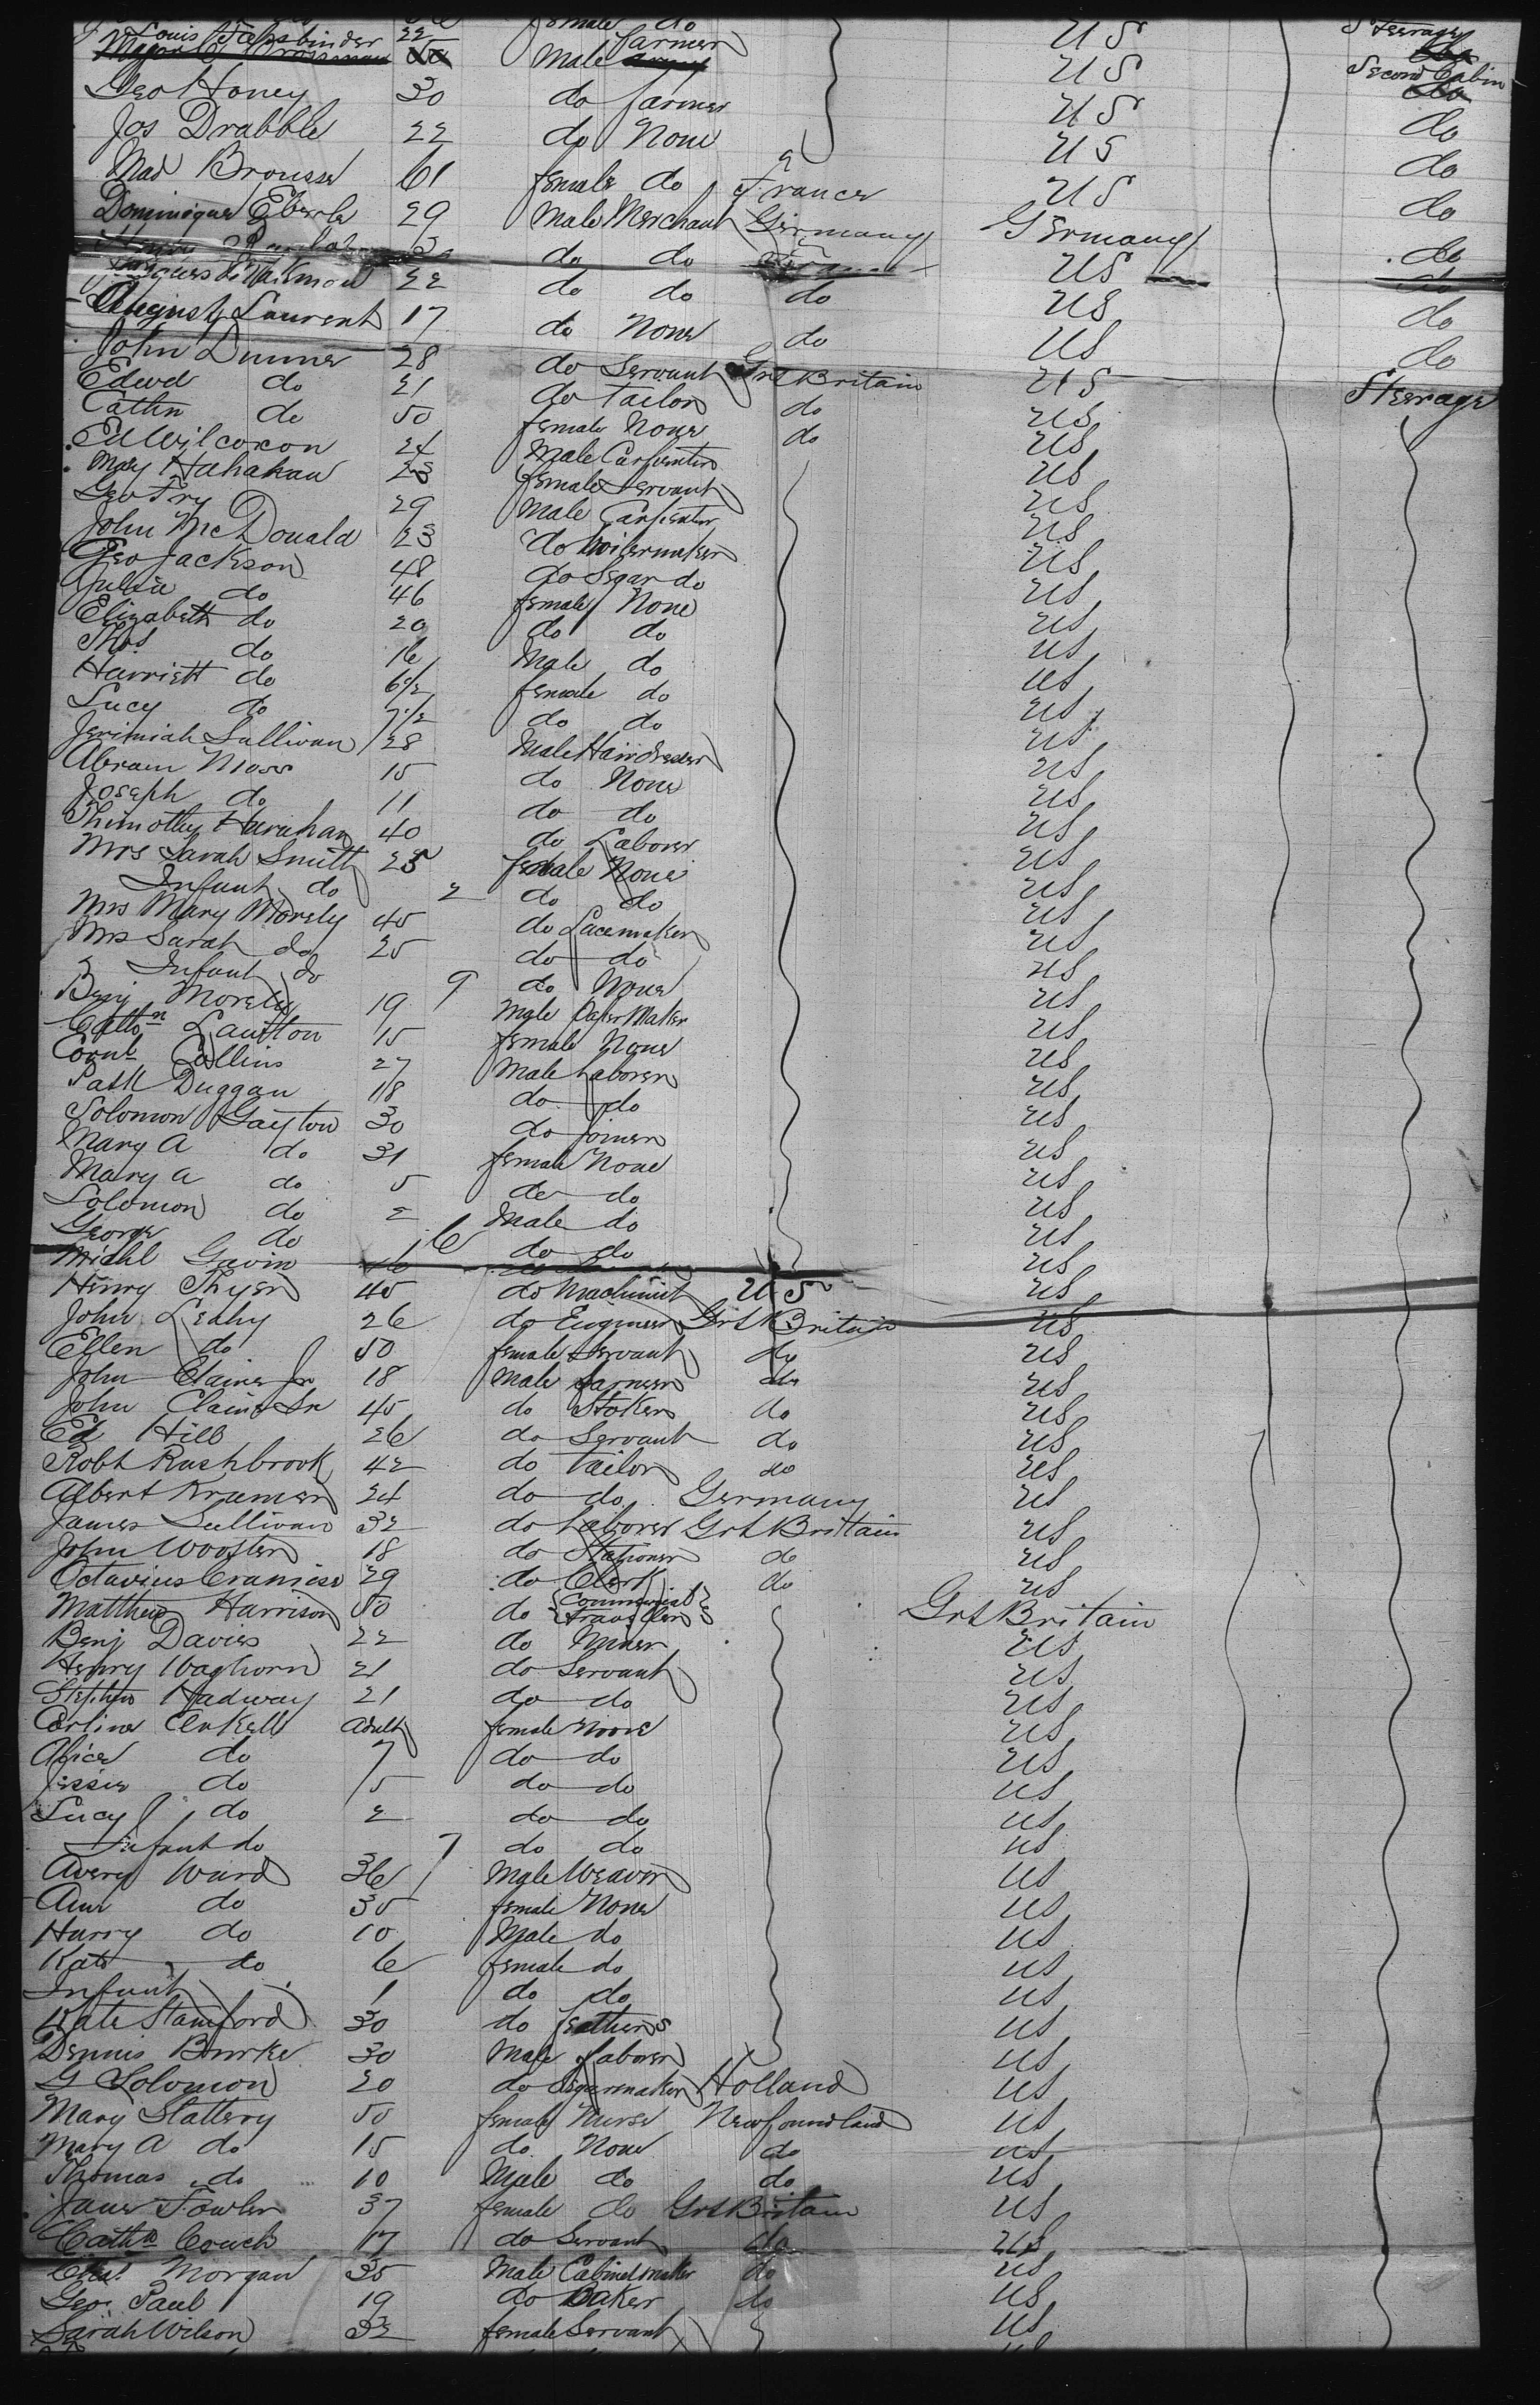 Louis Fassbinder 22 farmer US Steerage
Geo Honey 30 do farmer US do
Jos Drabble 22 do None US do
Mad Brousse 61 female do France US do
Dominique Eberle 29 Male Merchant Germany Germany do
do do US do
22 do do do US do
August Laurent 17 do None do US do
John Dunner 28 do Servant Grt Britain US Steerage
Edwd do 21 do Tailor do US
Cathn do 50 female None do US
Ed Wilcoxon 24 Male Carpenter US
Mary Hahahan 23 female Servant US
Geo Fry 29 Male Carpenter US
John McDonald 23 do Boilermaker US
Geo Jackson 48 do Segar do US
Julia do 46 female None US
Elizabeth do 20 do do US
Thos do 16 Male do US
Harriett do 6 1/2 female do US
Lucy do 7 1/2 do do US
Jerimiah Sullivan 28 Male Hairdresser US
Abram Moss 15 do None US
Joseph do 11 do do US
Thimothy Harahan 40 do Laborer US
Mrs Sarah Smith 25 female None US
Infant do 2 do do US
Mrs Mary Morely 45 do Lacemaker US
Mrs Sarah do 25 do do US
Infant do 9 do None US
Benj Morely 19 Male Paper Maker US
Cathn Lautton 15 female None US
Cornl Collins 27 Male Laborer US
Patk Duggan 18 do do US
Solomon Gayton 30 do Joiner US
Mary A do 31 female None US
Mary A do 5 do do US
Solomon do 2 Male do US
George do 6 do do US
Michl Gavin US
Henry Thyer 45 do Machinist US US
John Leahy 26 do Engineer Grt Britain US
Ellen do 50 female Servant do US
John Claine Jr 18 Male farmer do US
John Claine Sr 45 do Stoker do US
Ed Hill 26 do Servant do US
Robt Rushbrook 42 do Tailor do US
Albert Kramer 24 do do Germany US
James Sullivan 32 do Laborer Grt Brittain US
John Wooster 18 do Stationer do US
Octavius Cramise 29 do Clerk do US
Matthew Harrison 50 do Commercial Traveller Grt Britain
Benj Davies 22 do Miner US
Henry Waghorn 21 do Servant US
Stephen Hadway 21 do do US
Carline Cenkell adult female None US
Alice do 7 do do US
Jessie do 5 do do US
Lucy do 2 do do US
Infant do 7 do do US
Avery Ward 36 Male Weaver US
Ann do 35 female None US
Harry do 10 Male do US
Kate do 6 female do US
Infant 1 do do US
Kate Stamford 30 do feathers US
Dennis Bourke 30 Male Laborer US
G Solomon 20 do Segarmaker Holland US
Mary Slattery 50 female Nurse Newfoundland US
Mary A do 15 do None do US
Thomas do 10 Male do do US
Jane Fowler 37 female do Grt Britain US
Cathn Couch 17 do Servant do US
Chas Morgan 35 Male Cabinetmaker do US
Geo Paul 19 do Baker do US
Sarah Wilson 32 female Servant US